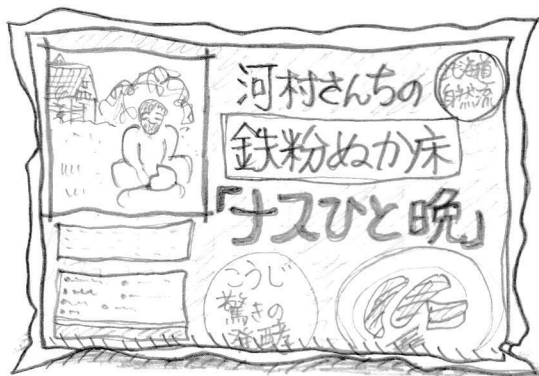 河村さんちの
北海道
自然流
鉄粉ぬか床
「ナスひと晩」
こうじ
驚きの
発酵